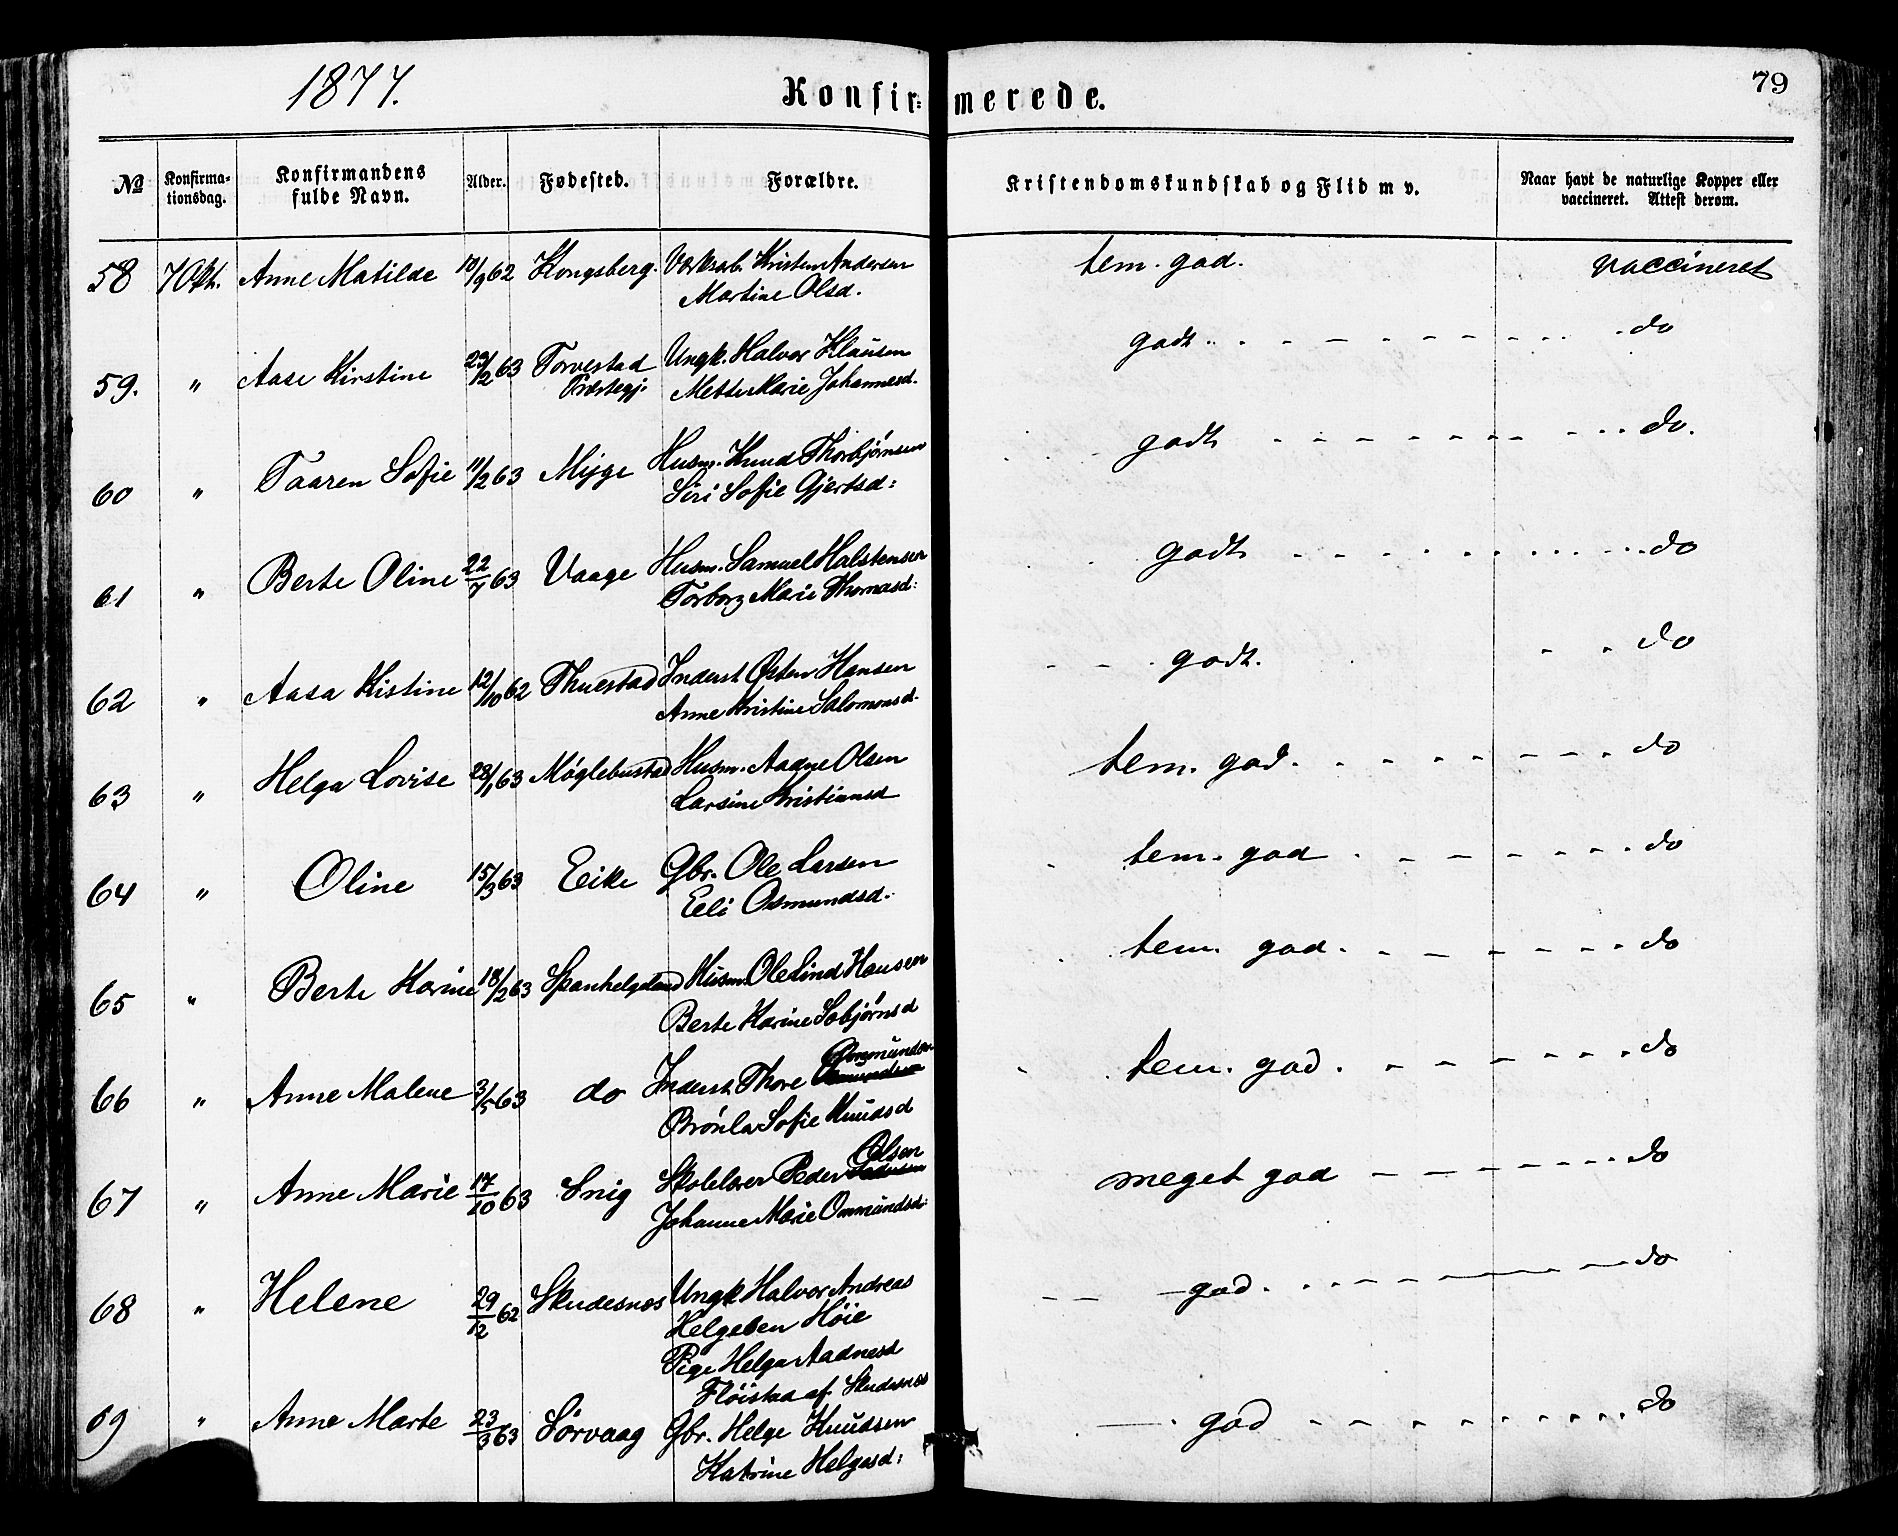 1877.
Konfir- merede.
79
№ Konfirma-tionsdag. Konfirmandens fulde Navn. Alder. Fødested. Forældre. Kristendomskundskab og Flid m v. Naar havt de naturlige Kopper eller vaccineret. Attest derom.
58 7 Okt. Anne Matilde 10/9 62 Kongsberg. Værksab. Kristen Andersen tem. god. vaccineret
Martine Olsd.
59. " Aase Kirstine 29/12 63 Torvestad Ungk. Halvor Klausen godt do
Præstegj: Mette Marie Johannesd.
60 " Taaren Sofie 11/2 63 Mygge Husm. Knud Thorbjørnsen godt do.
Siri Sofie Gjertsd:
61 " Berte Oline 22/7 63 Vaage Husm. Samuel Halstensen godt do
Torborg Marie Thomasd:
62 " Aasa Kistine 12/10 62 Thuestad Inderst Østen Hansen godt. do
Anne Kristine Salomonsd.
63 " Helga Lovise 28/1 63 Møglebustad Husm. Aadne Olsen tem. god. do
Larsine Kristiansd
64 " Oline 15/3 63 Eike Gbr. Ole Larsen tem. god do
Eeli Osmundsd.
65 " Berte Karine 18/2 63 Spanhelgeland Husm. Ole Lind Hansen tem. god. do
Berte Karine Sobjørnsd
66 " Anne Malene 3/5 63 do Inderst Thore Ommundsen tem. god. do
Brønla Sofie Knudsd
67 " Anne Marie 17/10 63 Snig Skolelærer Peder Olsen meget god do
Johanne Marie Ommundsd:
68 " Helene 29/12 62 Skudesnes Ungk Halvor Andreas god. do
Helgesen Høie
Pige Helga Aadnesd
Fløistaa af Skudesnes
69 " Anne Marte 23/3 63 Sørvaag Gbr. Helge Knudsen god do
Katrine Helgesd: